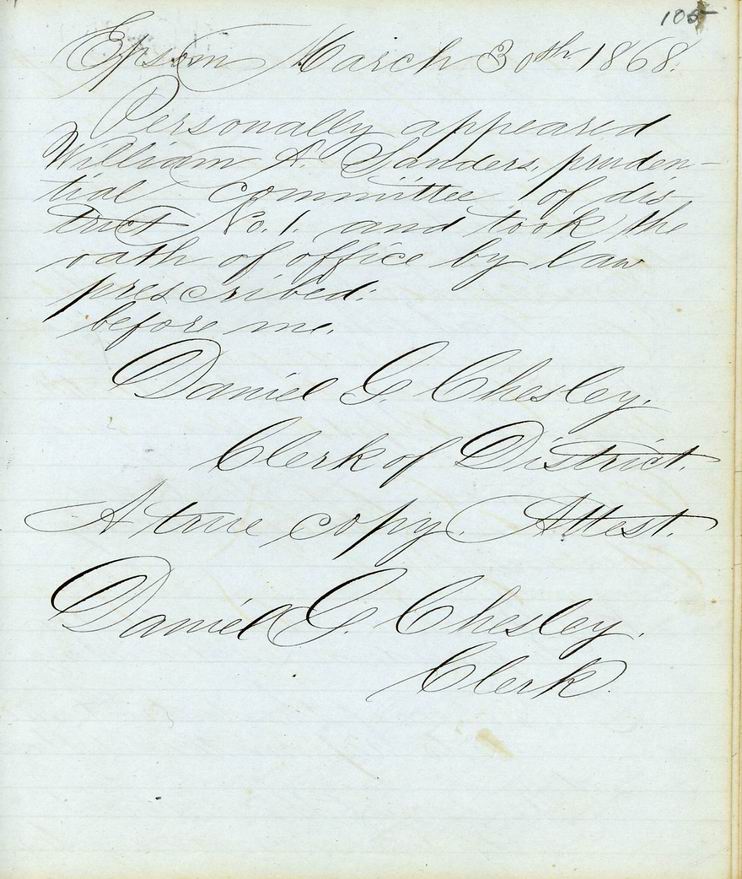 105
Epsom March 30th 1868.
Personally appeared
William A. Sanders, pruden-
tial committee of dis-
trict No. 1. and took the
oath of office by law
prescribed.
before me.
Daniel G. Chesley,
Clerk of District.
A true copy. Attest.
Daniel G. Chesley.
Clerk.